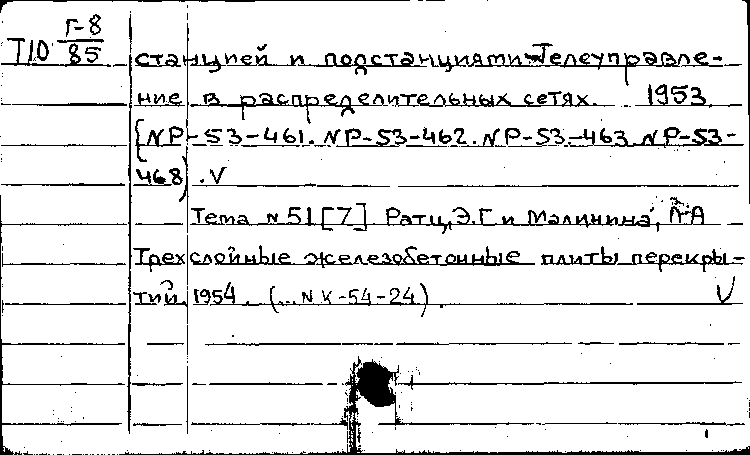 Г-8
Т10 85
станцией и подстанциями Телеуправле-
ние в распределительных сетях. 1953.
(NP-53-461. NP-53-462. NP-53-463 NP-53-
468) . V
Тема N 51 [7] Ратц, Э.Г. и Малинина, Л.А
Трехслойные железобетонные плиты перекры-
тий. 1954. (...N К-54-24) . V